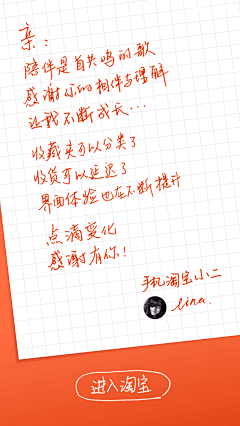 亲：
陪伴是首共鸣的歌
感谢你们的相伴与理解
让我不断成长…
收藏夹可以分类了
收货可以延迟了
界面体验也在不断提升
点滴变化
感谢有你！
手机淘宝小二
lina.
进入淘宝